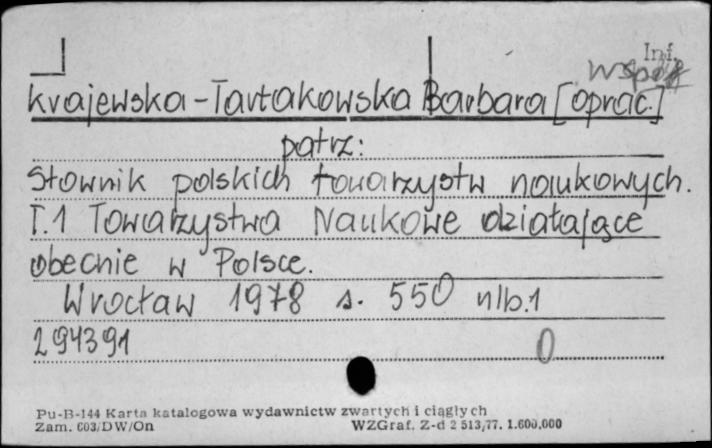 Inf.
współ
Krajewska-Tartakowska Barbara [oprac.]
patrz:
Słownik polskich towarzystw naukowych.
T.1 Towarzystwa Naukowe działające
obecnie w Polsce.
Wrocław 1978 s. 550 nlb.1
294391 0
Pu-B-144 Karta katalogowa wydawnictw zwartych i ciągłych
Zam. 603/DW/On WZGraf. Z-d 2 513,77. 1.600,000